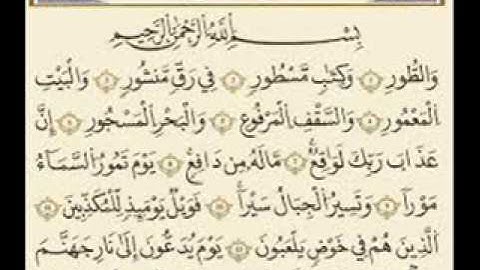 بِسْمِ اللَّهِ الرَّحْمَٰنِ الرَّحِيمِ
وَالطُّورِ ۝١ وَكِتَابٍ مَّسْطُورٍ ۝٢ فِي رَقٍّ مَّنشُورٍ ۝٣ وَالْبَيْتِ
الْمَعْمُورِ ۝٤ وَالسَّقْفِ الْمَرْفُوعِ ۝٥ وَالْبَحْرِ الْمَسْجُورِ ۝٦ إِنَّ
عَذَابَ رَبِّكَ لَوَاقِعٌ ۝٧ مَّا لَهُ مِن دَافِعٍ ۝٨ يَوْمَ تَمُورُ السَّمَاءُ
مَوْرًا ۝٩ وَتَسِيرُ الْجِبَالُ سَيْرًا ۝١٠ فَوَيْلٌ يَوْمَئِذٍ لِّلْمُكَذِّبِينَ ۝١١
الَّذِينَ هُمْ فِي خَوْضٍ يَلْعَبُونَ ۝١٢ يَوْمَ يُدَعُّونَ إِلَىٰ نَارِ جَهَنَّمَ